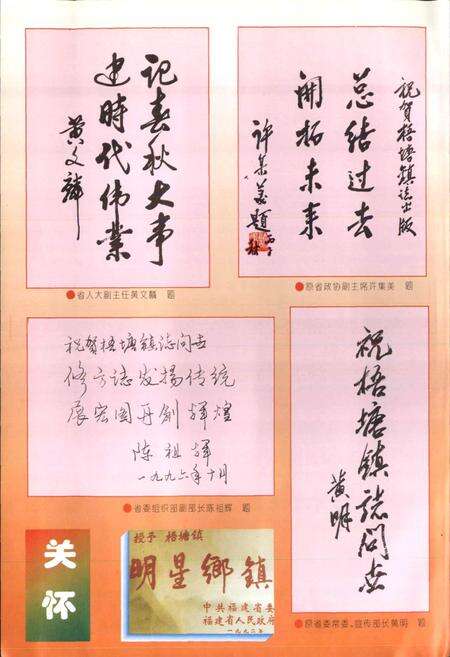 记春秋大事
建时代伟业
黄文麟
●省人大副主任黄文麟 题
祝贺梧塘镇志出版
总结过去
开拓未来
许集美题
●原省政协副主席许集美 题
祝贺梧塘镇志问世
修方志发扬传统
展宏图再創辉煌
陈祖辉
一九九六年十月
●省委组织部副部长陈祖辉 题
祝梧塘镇誌问世
黄明
●原省委常委、宣传部长黄明 题
关怀
授予 梧塘镇
明星鄉鎮
中共福建省委
福建省人民政府